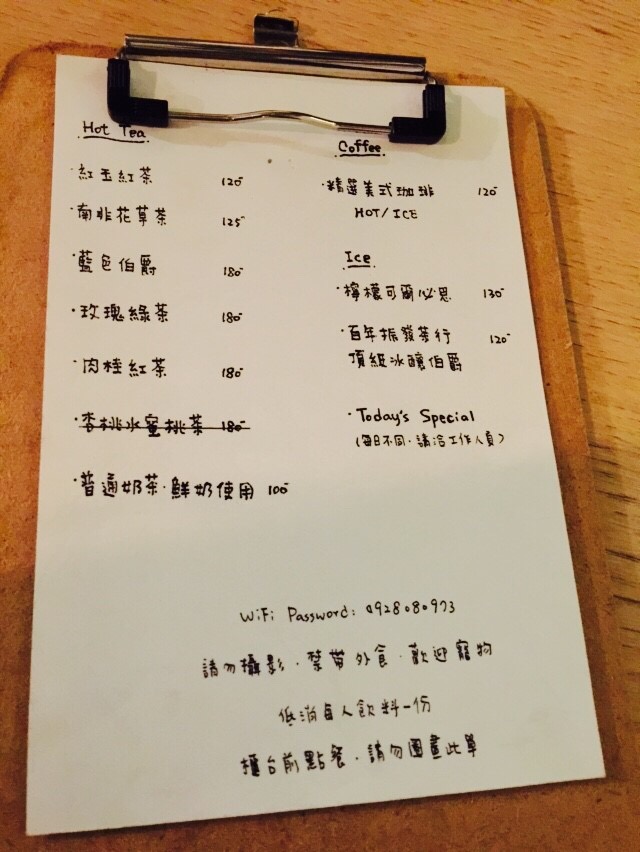 Hot Tea
·紅玉紅茶 120-
·南非花草茶 125-
·藍色伯爵 180-
·玫瑰綠茶 180-
·肉桂紅茶 180-
·杏桃水蜜桃茶 180-
·普通奶茶·鮮奶使用 100-
Coffee
·精選美式珈琲 120-
HOT/ICE
Ice
·檸檬可爾必思 130-
·百年振發茶行 120-
頂級冰釀伯爵
·Today's Special
(每日不同·請洽工作人員)
WiFi Password: 0928080973
請勿攝影·禁帶外食·歡迎寵物
低消每人飲料一份
櫃台前點餐·請勿圈畫此單